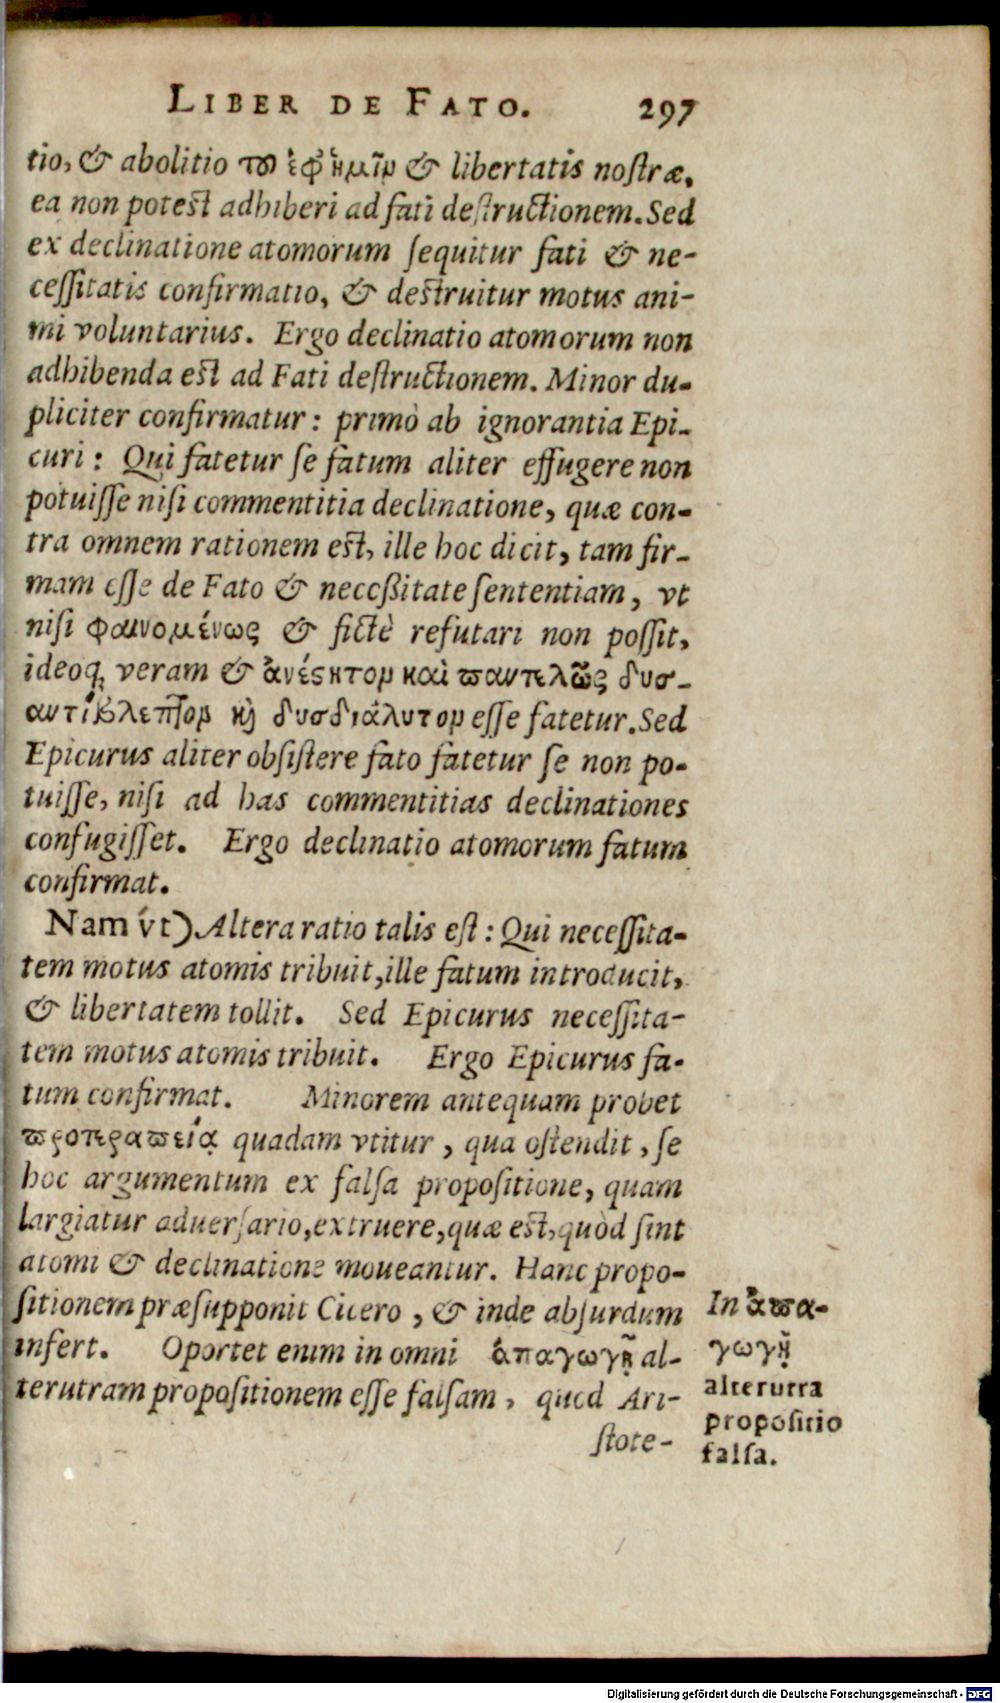 LIBER DE FATO. 297
tio, & abolitio τοῦ ἐφ' ἡμῖν & libertatis nostræ,
ea non potest adhiberi ad fati destructionem. Sed
ex declinatione atomorum sequitur fati & ne-
cessitatis confirmatio, & destruitur motus ani-
mi voluntarius. Ergo declinatio atomorum non
adhibenda est ad Fati destructionem. Minor du-
pliciter confirmatur: primò ab ignorantia Epi-
curi: Qui fatetur se fatum aliter effugere non
potuisse nisi commentitia declinatione, quæ con-
tra omnem rationem est, ille hoc dicit, tam fir-
mam esse de Fato & necessitate sententiam, vt
nisi φαινομένως & fictè refutari non possit,
ideoq; veram & ἀνένκτον καὶ παντελῶς δυσ-
αντίβλεπτον κὶ δυσδιάλυτον esse fatetur. Sed
Epicurus aliter obsistere fato fatetur se non po-
tuisse, nisi ad has commentitias declinationes
confugisset. Ergo declinatio atomorum fatum
confirmat.
Nam vt) Altera ratio talis est: Qui necessita-
tem motus atomis tribuit, ille fatum introducit,
& libertatem tollit. Sed Epicurus necessita-
tem motus atomis tribuit. Ergo Epicurus fa-
tum confirmat. Minorem antequam probet
προτεραπείᾳ quadam vtitur, qua ostendit, se
hoc argumentum ex falsa propositione, quam
largiatur aduersario, extruere, quæ est, quòd sint
atomi & declinatione moueantur. Hanc propo-
sitionem præsupponit Cicero, & inde absurdum
infert. Oportet enim in omni ἀπαγωγῇ al-
terutram propositionem esse falsam, quod Ari-
stote-
In ἀπα-
γωγῇ
alterutra
propositio
falsa.
Digitalisierung gefördert durch die Deutsche Forschungsgemeinschaft - DFG